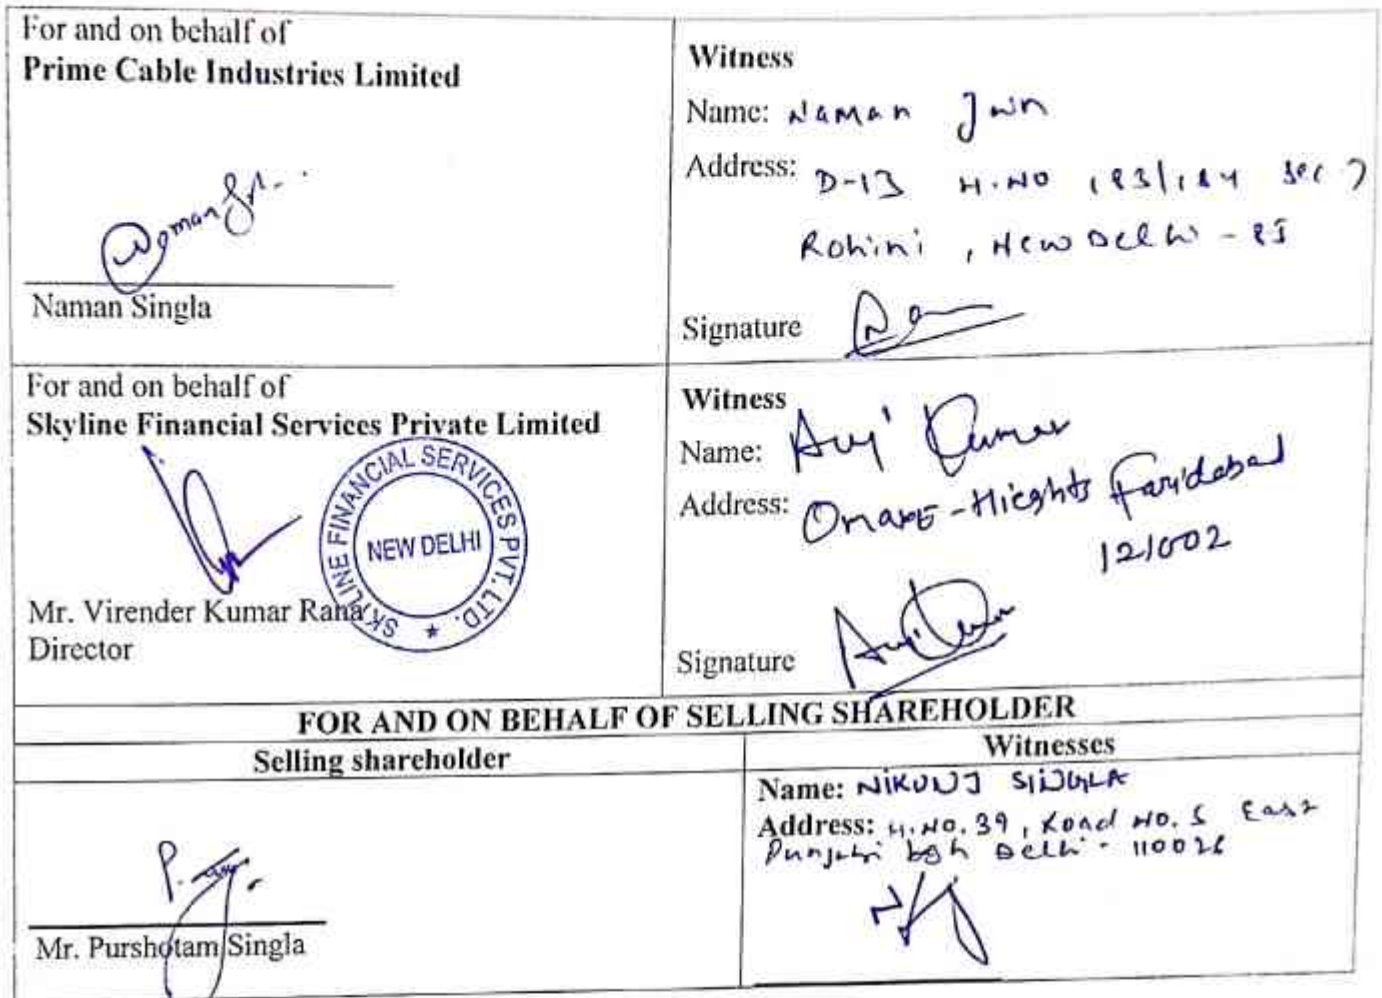 For and on behalf of
Prime Cable Industries Limited
Naman Singla
Witness
Name: Naman Jain
Address: D-13 H.NO 183/184 Sec 7
Rohini, New Delhi - 85
Signature
For and on behalf of
Skyline Financial Services Private Limited
SKYLINE FINANCIAL SERVICES PVT. LTD.
NEW DELHI
Mr. Virender Kumar Rana
Director
Witness
Name: Kumar
Address: Omaxe-Hieghts Faridabad
121002
Signature
FOR AND ON BEHALF OF SELLING SHAREHOLDER
Selling shareholder
Mr. Purshotam Singla
Witnesses
Name: NIKUNJ SINGLA
Address: H.NO. 39, Road NO. 5 East
Punjabi bgh Delhi - 110026